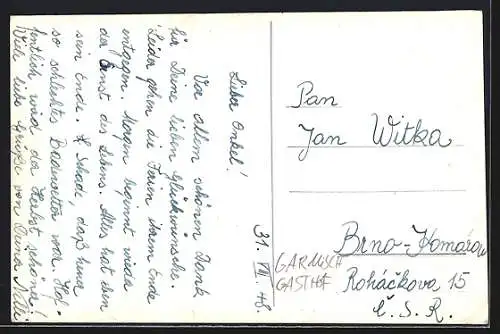 31. VIII. 48.
Lieber Onkel!
Vor allem schönen Dank
für Deine lieben Glückwünsche.
Leider gehen die Ferien ihrem Ende
entgegen. Morgen beginnt wieder
der Ernst des Lebens. Alles hat eben
sein Ende. Schade, daß heuer
so schlechtes Badewetter war. Hof-
fentlich wird der Herbst schöner!
Viele liebe Grüße von
Pan
Jan Witka
Brno-Komárov
Roháčkova 15
Č. S. R.
GARMISCH
GASTHOF